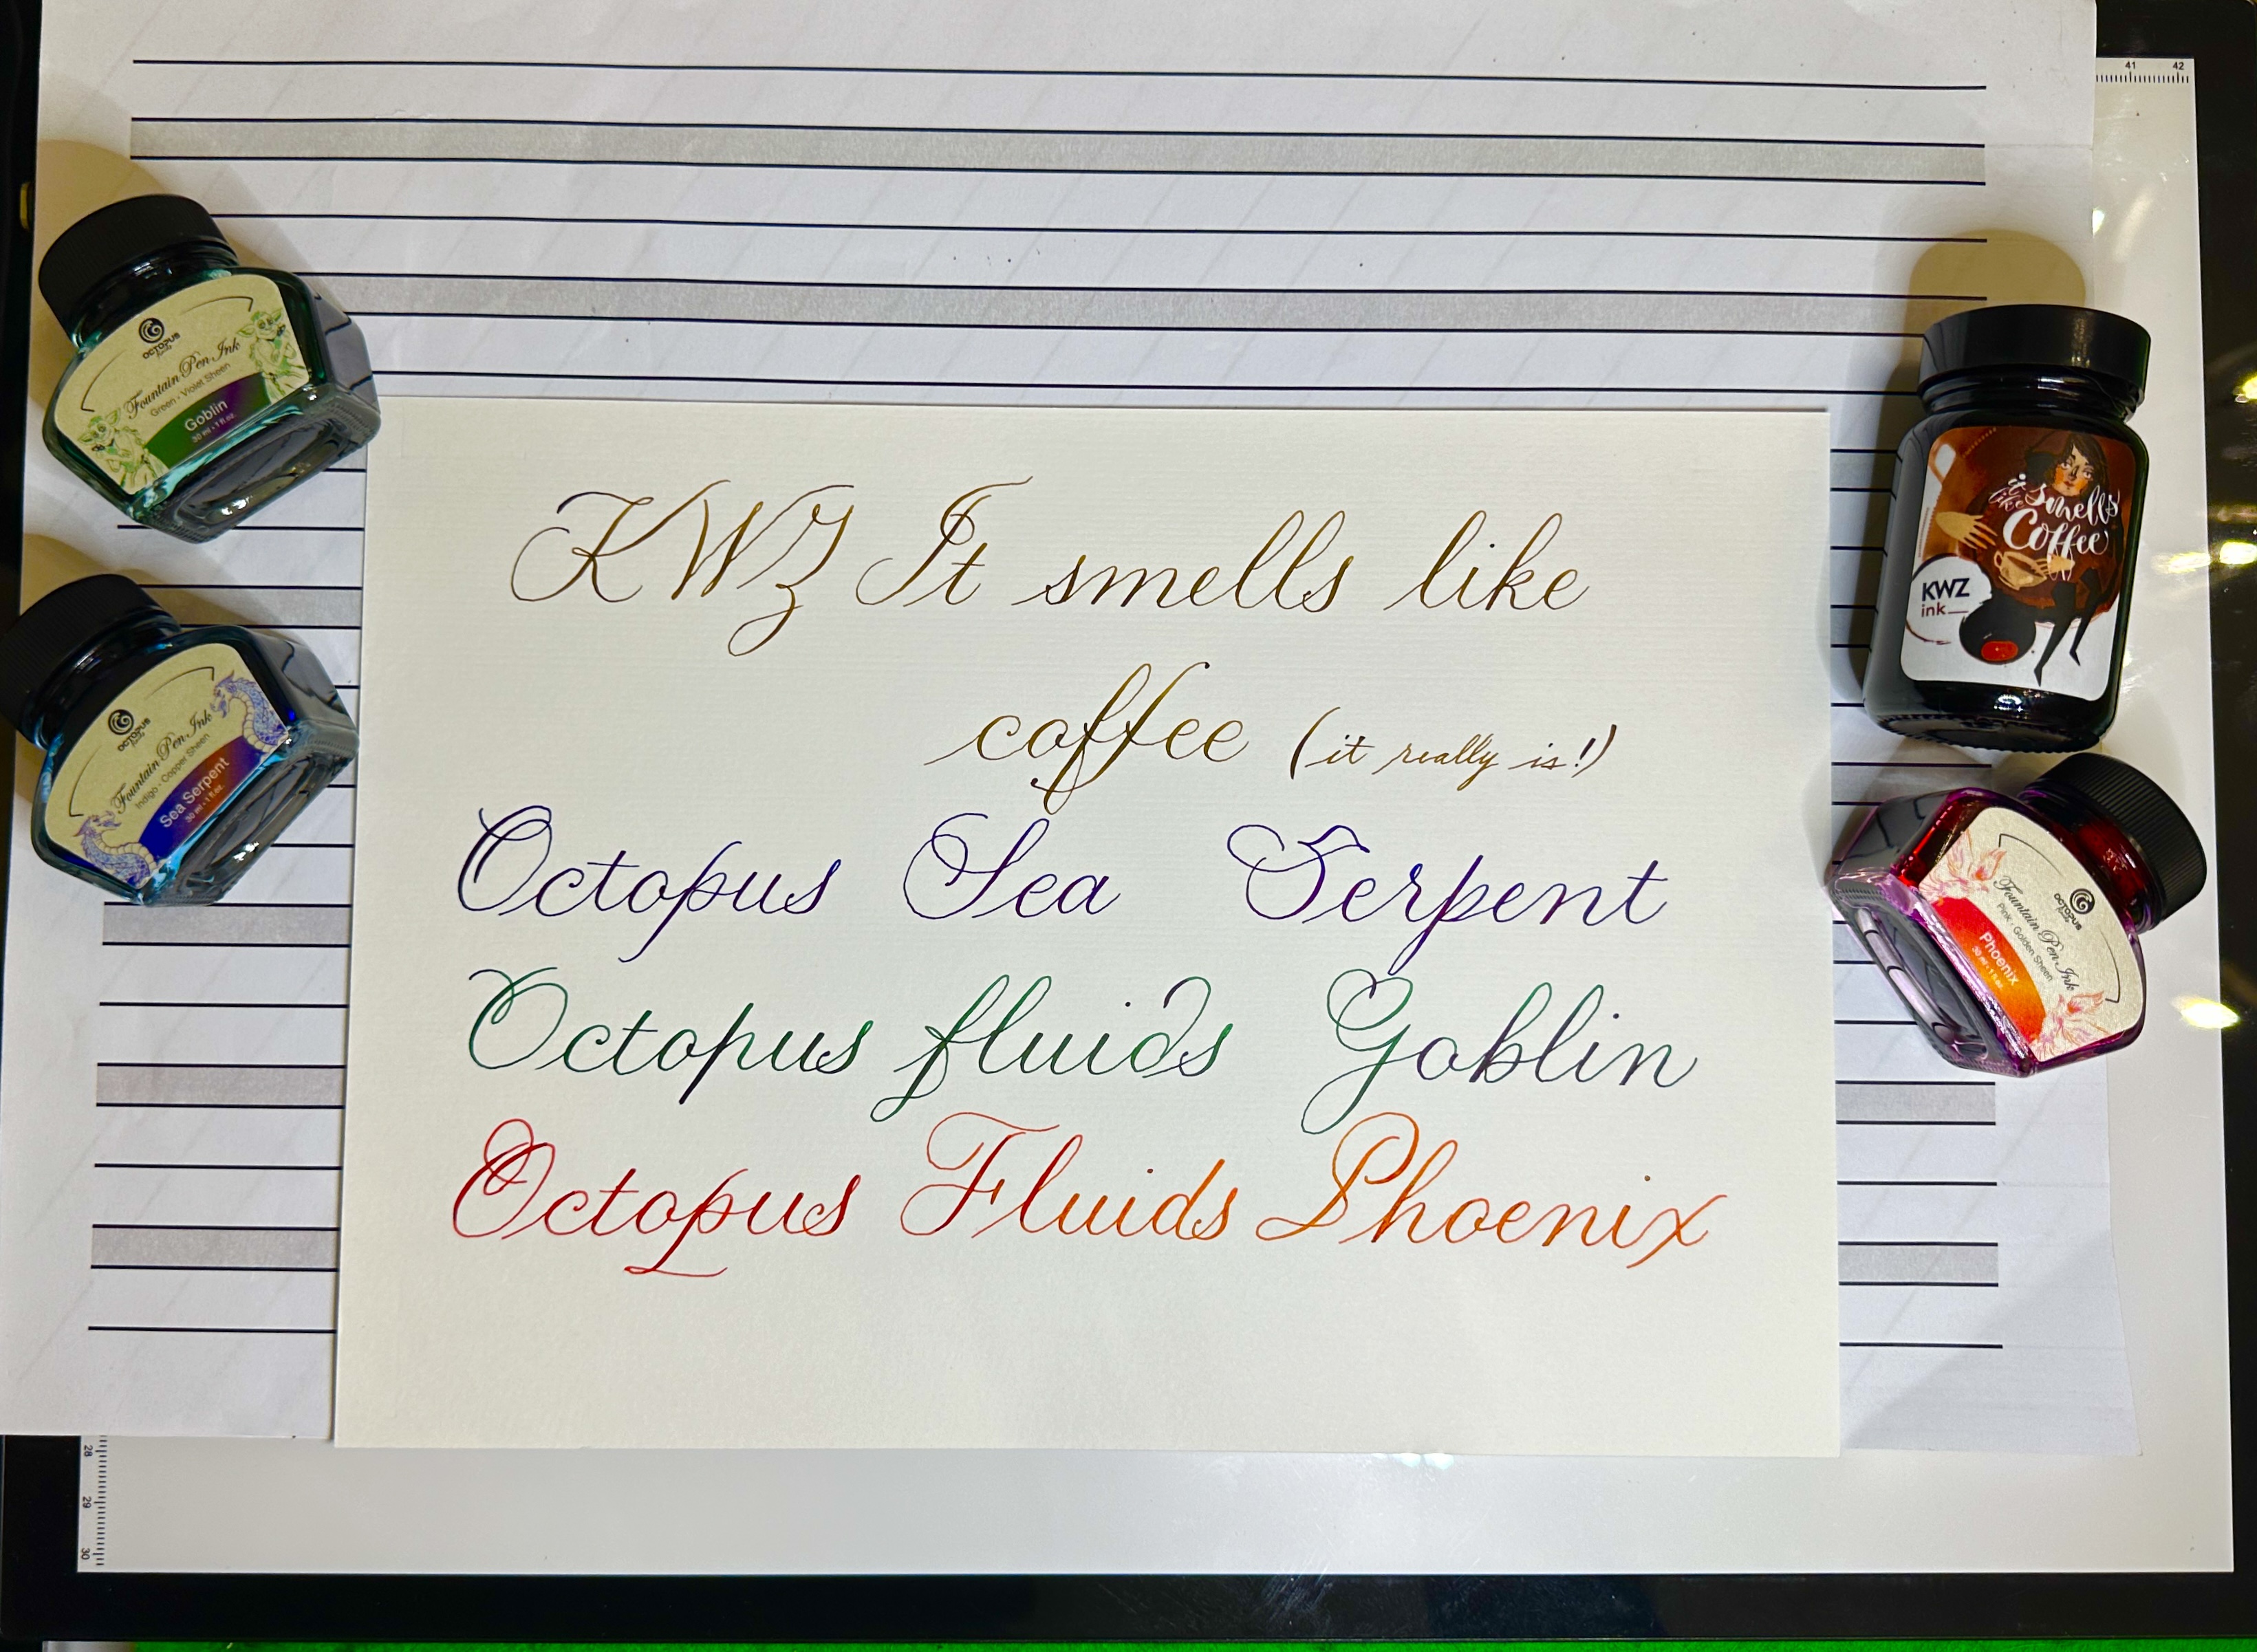 41 42
OCTOPUS
fluids
Fountain Pen Ink
Green - Violet Sheen
Goblin
30 ml - 1 fl oz.
OCTOPUS
fluids
Fountain Pen Ink
Indigo - Copper Sheen
Sea Serpent
30 ml - 1 fl oz.
KWZ It smells like
coffee (it really is!)
Octopus Sea Serpent
Octopus fluids Goblin
Octopus Fluids Phoenix
it smells
like Coffee
KWZ
ink
OCTOPUS
fluids
Fountain Pen Ink
Pink - Golden Sheen
Phoenix
30 ml - 1 fl oz.
28
29
30